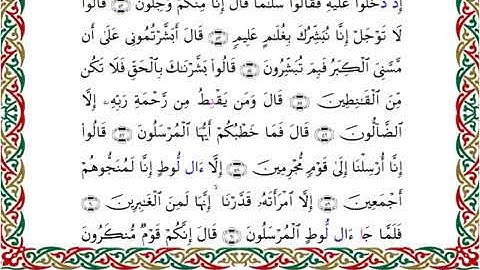 إِذْ دَخَلُوا۟ عَلَيْهِ فَقَالُوا۟ سَلَٰمًا قَالَ إِنَّا مِنكُمْ وَجِلُونَ ۝ قَالُوا۟
لَا تَوْجَلْ إِنَّا نُبَشِّرُكَ بِغُلَٰمٍ عَلِيمٍ ۝ قَالَ أَبَشَّرْتُمُونِى عَلَىٰٓ أَن
مَّسَّنِىَ ٱلْكِبَرُ فَبِمَ تُبَشِّرُونَ ۝ قَالُوا۟ بَشَّرْنَٰكَ بِٱلْحَقِّ فَلَا تَكُن
مِّنَ ٱلْقَٰنِطِينَ ۝ قَالَ وَمَن يَقْنَطُ مِن رَّحْمَةِ رَبِّهِۦٓ إِلَّا
ٱلضَّآلُّونَ ۝ قَالَ فَمَا خَطْبُكُمْ أَيُّهَا ٱلْمُرْسَلُونَ ۝ قَالُوٓا۟
إِنَّآ أُرْسِلْنَآ إِلَىٰ قَوْمٍ مُّجْرِمِينَ ۝ إِلَّآ ءَالَ لُوطٍ إِنَّا لَمُنَجُّوهُمْ
أَجْمَعِينَ ۝ إِلَّا ٱمْرَأَتَهُۥ قَدَّرْنَآ ۙ إِنَّهَا لَمِنَ ٱلْغَٰبِرِينَ ۝
فَلَمَّا جَآءَ ءَالَ لُوطٍ ٱلْمُرْسَلُونَ ۝ قَالَ إِنَّكُمْ قَوْمٌ مُّنكَرُونَ